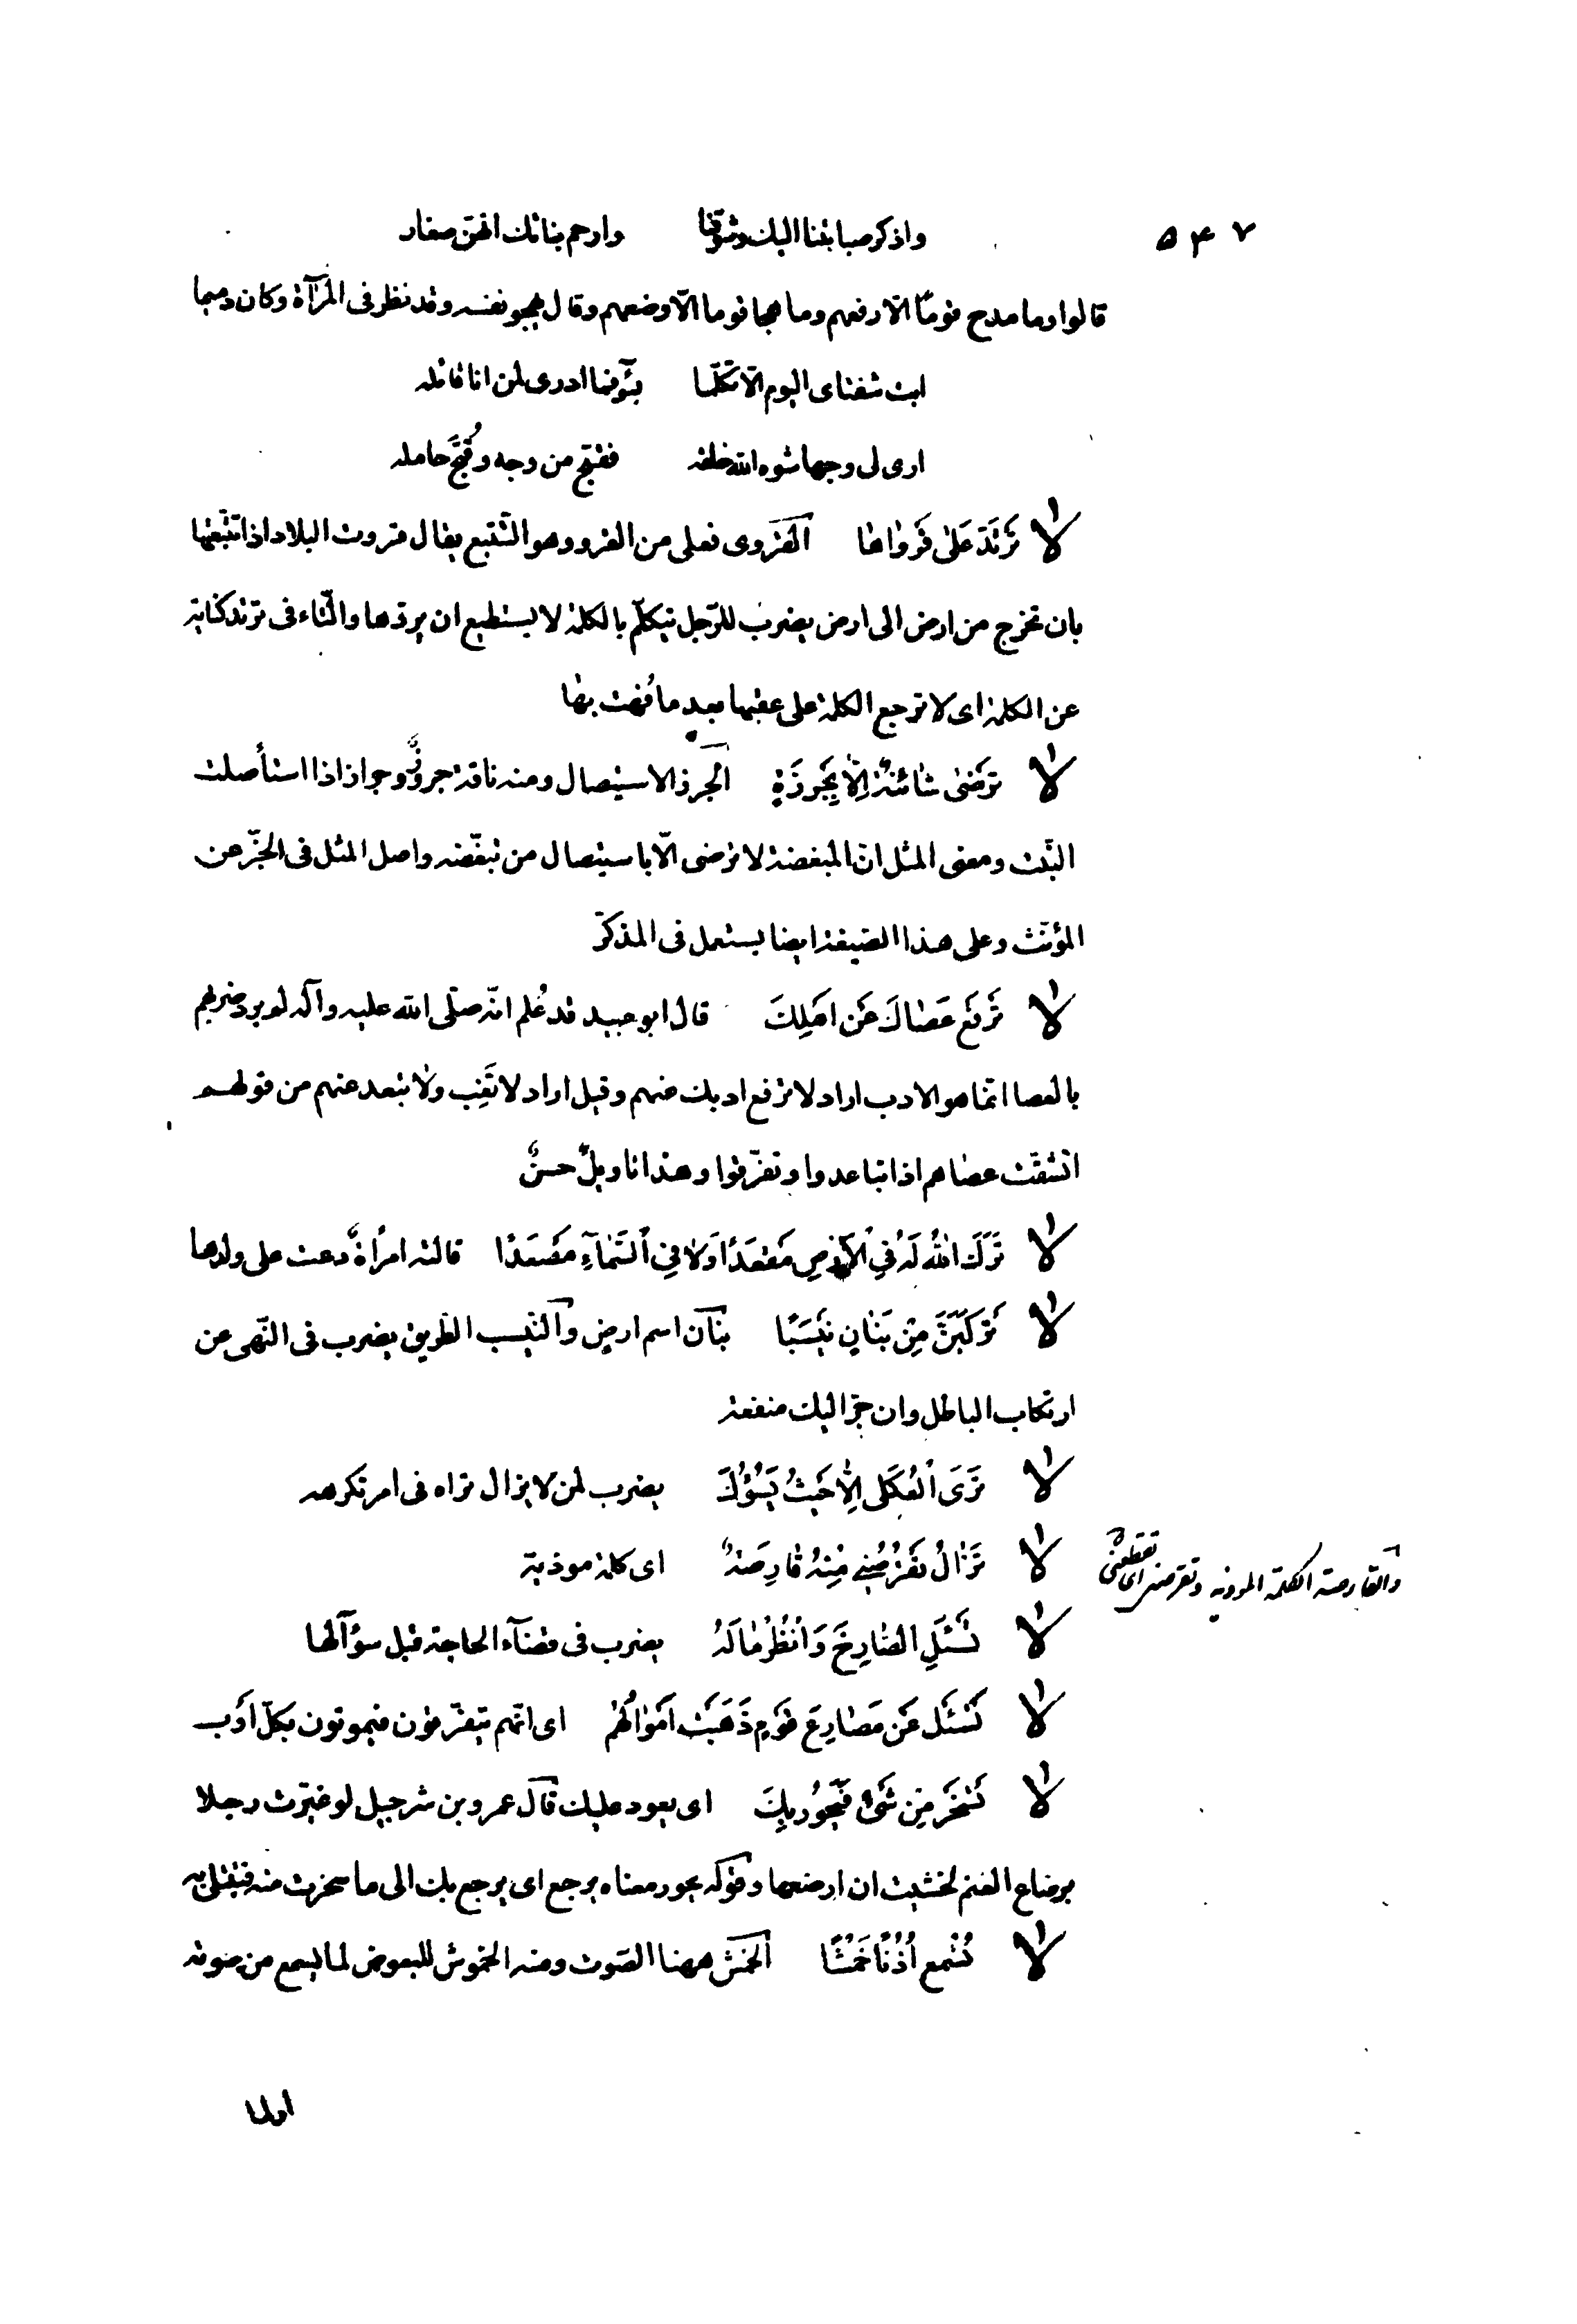 ٥٤٧
واذكر صبابتنا اليك وشوقنا وارحم بناتك انهنّ صغار
قالوا وما مدح قومًا الّا رفعهم وما هجا قوما الّا وضعهم وقال يهجو نفسه وقد نظر فى المرآة وكان دميما
ابت شفتاى اليوم الّا تكلّما بسوء فما ادرى لمن انا قائله
ارى لى وجها شوه الله خلقه فقبّح من وجه وقُبّح حامله
لا تَرْتَدّ عَلىٰ قَرْواها القروى فعلى من القرو وهو التّتبع يقال قروت البلاد اذا تتبّعتها
بان تخرج من ارض الى ارض يضرب للرّجل يتكلّم بالكلمة لا يستطيع ان يردّها والتّاء فى ترتد كناية
عن الكلمة اى لا ترجع الكلمة على عقبها بعد ما فُهت بها
لا تَرْضىٰ شانئةٌ اِلّا بِجَرْزَةٍ الجرز الاستيصال ومنه ناقة جروزٌ وجراز اذا استأصلت
النّبت ومعنى المثل انّ المبغضة لا ترضى الّا باستيصال من تبغّضه واصل المثل فى الخبر عن
المؤنّث وعلى هذا الصّيغة ايضا يستعمل فى المذكّر
لا تَرْفَعْ عَصٰاكَ عَنْ اَهْلِكَ قال ابو عبيد قد عُلم انّه صلّى الله عليه وآله لم يرد ضربهم
بالعصا انّما هو الادب اراد لا ترفع ادبك عنهم وقيل اراد لا تَغِب ولا تبعد عنهم من قولهم
انشقّت عصاهم اذا تباعدوا وتفرّقوا وهذا تاويلٌ حسنٌ
لا تَرَكَ اللهُ لَهُ فِي الْاَرْضِ مَقْعَدًا وَلا فِي السَّمٰآءِ مَصْعَدًا قالته امرأةٌ دعت على ولدها
لا تَرْكَبَنَّ مِنْ بَنٰانٍ نَيْسَبًا بنان اسم ارض والنّيسب الطّريق يضرب فى النّهى عن
ارتكاب الباطل وان جرّ اليك منفعة
لا تَرَى الْعُكْلِى اِلّا حَيْثُ يَسُوْؤُكَ يضرب لمن لا يزال تراه فى امر تكرهه
لا تَزٰالُ تَقْرُصُنِي مِنْهُ قٰارِصَةٌ اى كلمة موذية
والقارصة الكلمة الموذية وتقرصنى اى تقطعنى
لا تَسْئَلِ الصّٰارِخَ وَانْظُرْ مٰا لَهُ يضرب فى قضآء الحاجة قبل سؤآلها
لا تَسْئَلْ عَنْ مَصٰارِعِ قَوْمٍ ذَهَبَتْ اَمْوٰالُهُمْ اى انّهم يتفرّقون فيموتون بكلّ اَوْب
لا تَسْخَرْ مِنْ شَىْءٍ فَيَحُوْرَ بِكَ اى يعود عليك قال عمرو بن شرحبيل لو عيّرت رجلا
برضاع الغنم لخشيت ان ارضعها وقوله يحور معناه يرجع اى يرجع بك الى ما سخرت منه فتبتلى به
لا تُسْمِع اُذُنًا خَمْشًا الخمش ههنا الصّوت ومنه الخموش للبعوض لما يسمع من صوته